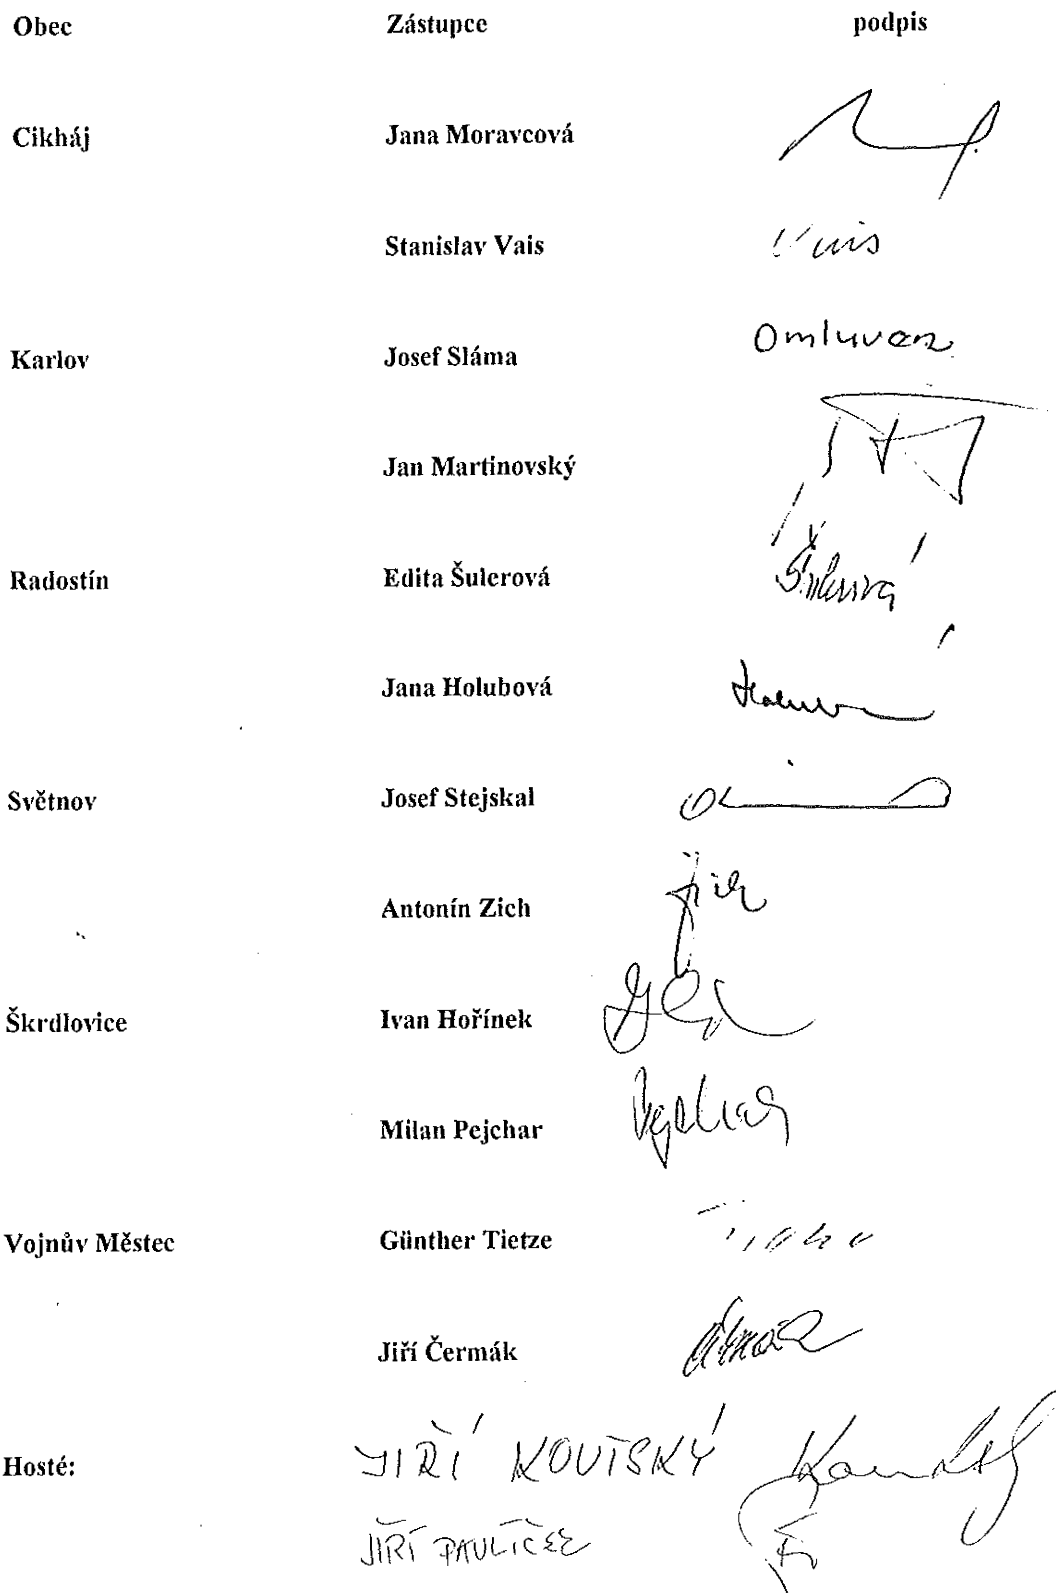 Obec Zástupce podpis
Cikháj Jana Moravcová
Stanislav Vais Vais
Karlov Josef Sláma Omluven
Jan Martinovský
Radostín Edita Šulerová Šulerová
Jana Holubová
Světnov Josef Stejskal
Antonín Zich Zich
Škrdlovice Ivan Hořínek
Milan Pejchar Pejchar
Vojnův Městec Günther Tietze
Jiří Čermák Čermák
Hosté: JIŘÍ KOUTSKÝ
JIŘÍ PAVLÍČEK